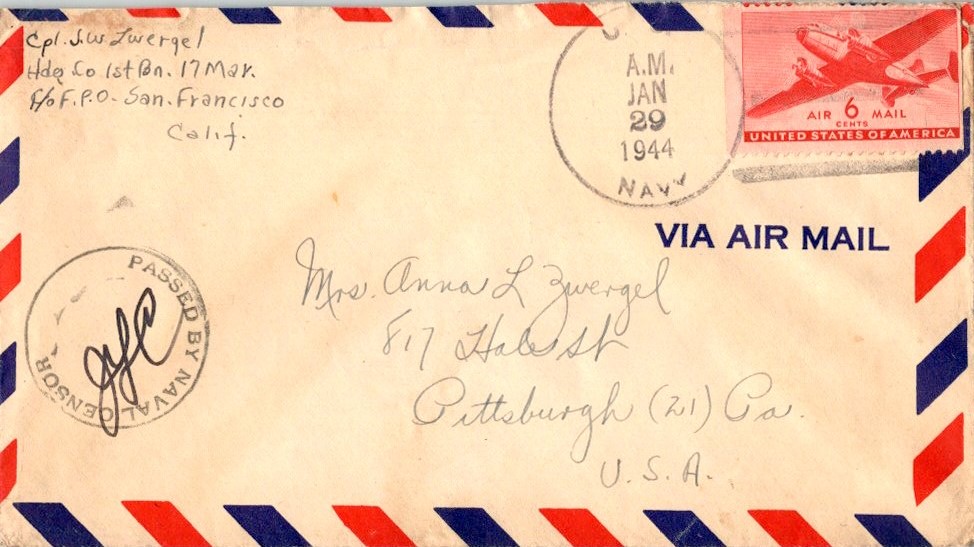 Cpl. J.W. Zwergel
Hdq Co 1st Bn. 17 Mar.
c/o F.P.O. San. Francisco
Calif.
A.M.
JAN
29
1944
NAVY
AIR 6 MAIL
CENTS
UNITED STATES OF AMERICA
VIA AIR MAIL
PASSED BY NAVAL CENSOR
Mrs. Anna L Zwergel
817 Hale St
Pittsburgh (21) Pa.
U.S.A.